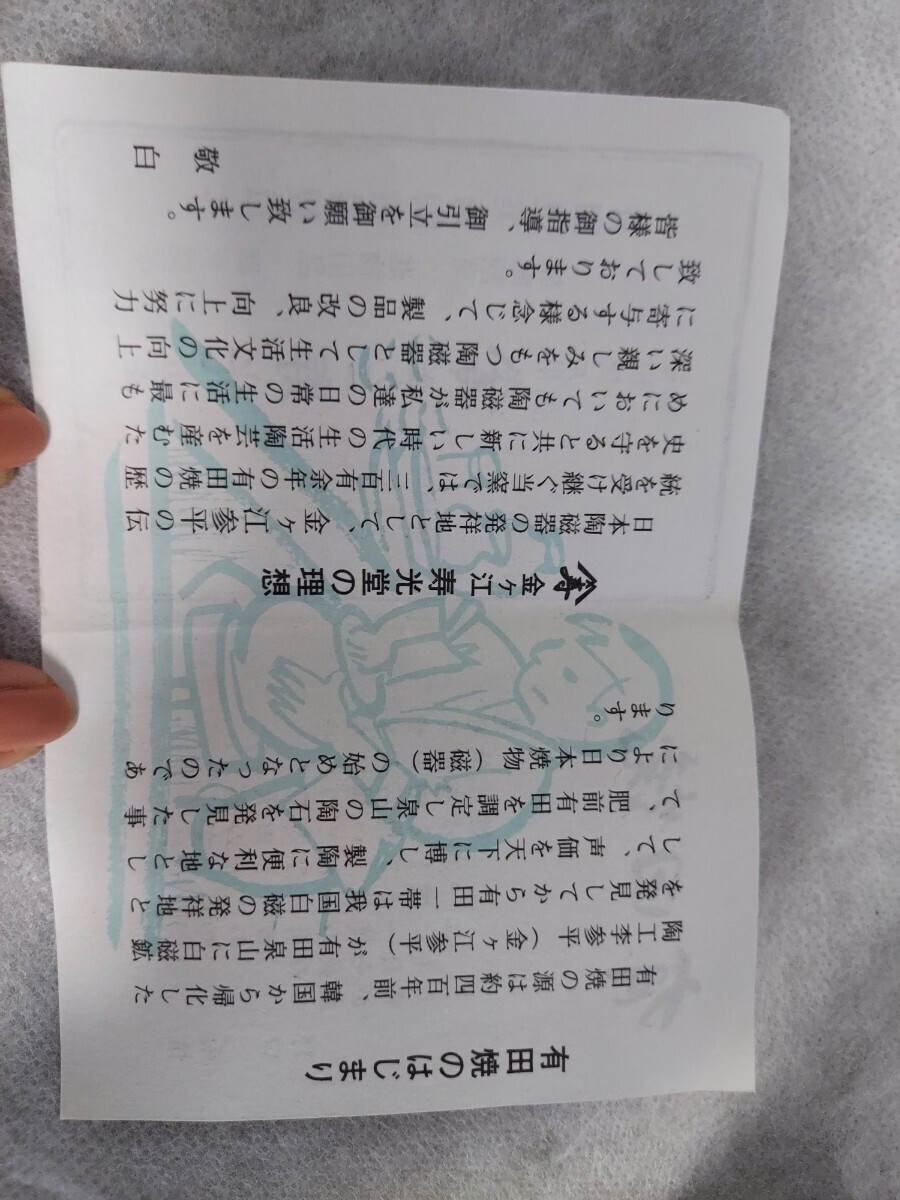 有田焼のはじまり
有田焼の源は約四百年前、韓国から帰化した
陶工李参平（金ヶ江参平）が有田泉山に白磁鉱
を発見してから有田一帯は我国白磁の発祥地と
して、声価を天下に博し、製陶に便利な地とし
て、肥前有田を調定し泉山の陶石を発見した事
により日本焼物（磁器）の始めとなったのであ
ります。
金ヶ江寿光堂の理想
日本陶磁器の発祥地として、金ヶ江参平の伝
統を受け継ぐ当窯では、三百有余年の有田焼の歴
史を守ると共に新しい時代の生活陶芸を産むた
めにおいても陶磁器が私達の日常の生活に最も
深い親しみをもつ陶磁器として生活文化の向上
に寄与する様念じて、製品の改良、向上に努力
致しております。
皆様の御指導、御引立を御願い致します。
敬白